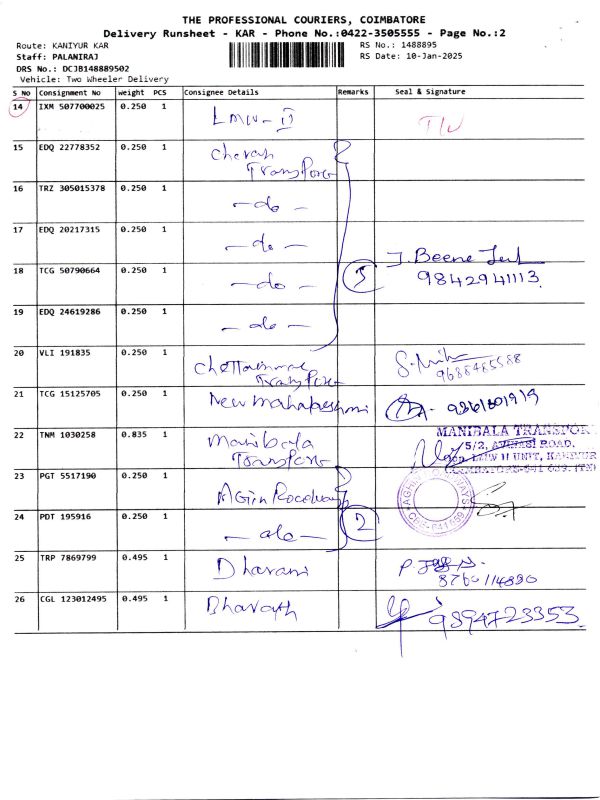 THE PROFESSIONAL COURIERS, COIMBATORE
Delivery Runsheet - KAR - Phone No.:0422-3505555 - Page No.:2
Route: KANIYUR KAR RS No.: 1488895
Staff: PALANIRAJ RS Date: 10-Jan-2025
DRS No.: DCJB148889502
Vehicle: Two Wheeler Delivery
S No Consignment No Weight PCS Consignee Details Remarks Seal & Signature
14 IXM 507700025 0.250 1 LMW - II
15 EDQ 22778352 0.250 1 Cheran
Transport
16 TRZ 305015378 0.250 1 - do -
17 EDQ 20217315 0.250 1 - do -
18 TCG 50790664 0.250 1 - do - 5 J. Beene
9842941113
19 EDQ 24619286 0.250 1 - do -
20 VLI 191835 0.250 1
Transport
21 TCG 15125705 0.250 1 New
22 TNM 1030258 0.835 1 Manibala MANIBALA TRANSPORT
Transport 5/2, AVINASI ROAD,
LMW II UNIT, KANIYUR
COIMBATORE-641 659.
23 PGT 5517190 0.250 1
24 PDT 195916 0.250 1 - do - 2
25 TRP 7869799 0.495 1 Dharani P.
8760114890
26 CGL 123012495 0.495 1 Bharath 9894723353